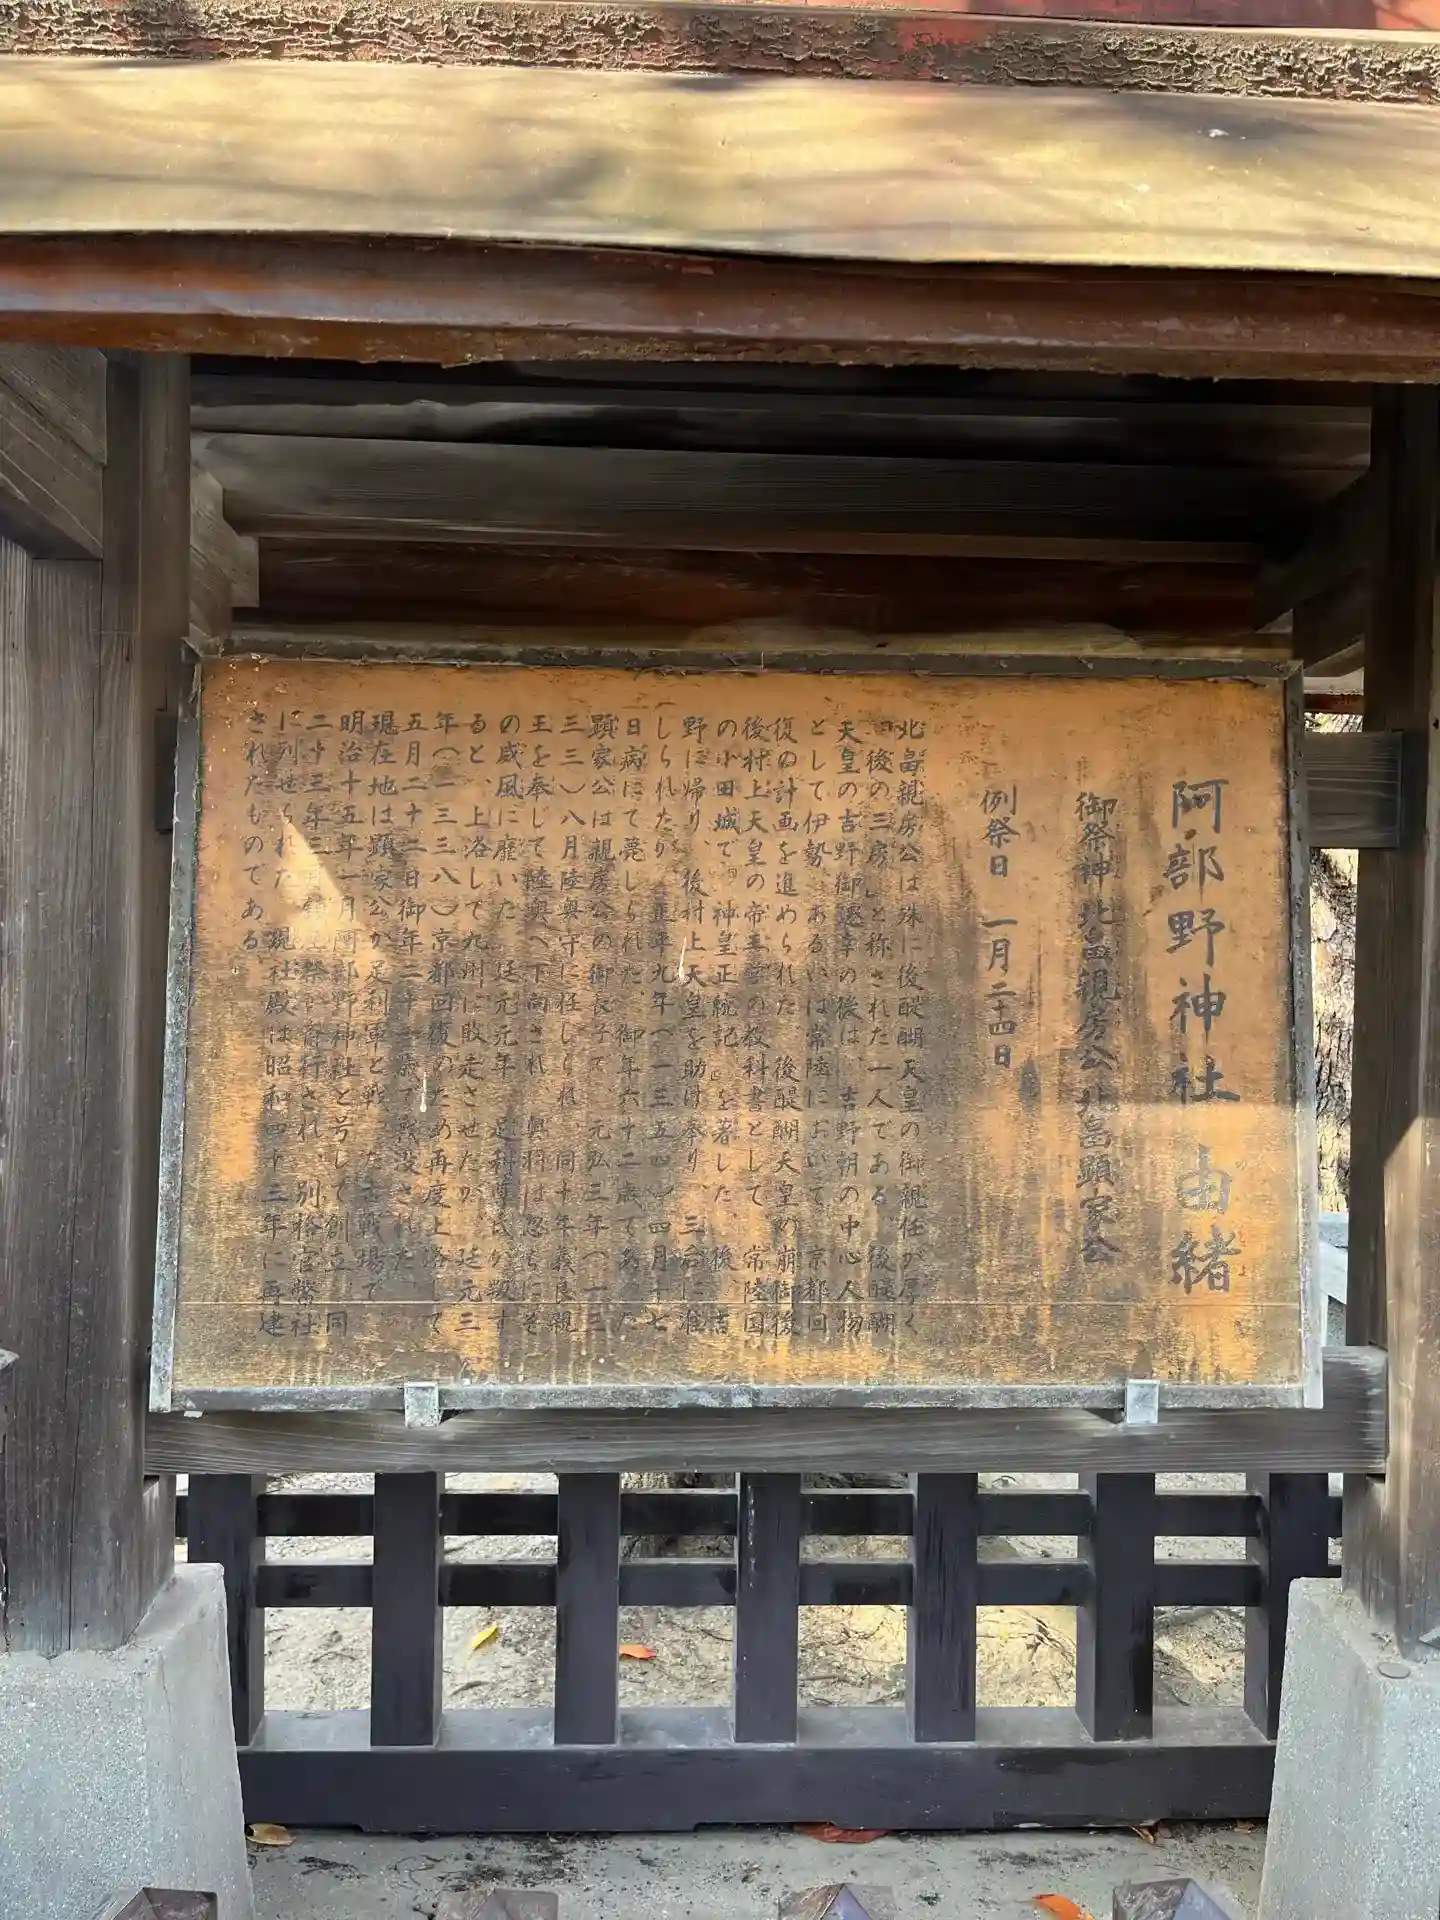 阿部野神社 由緒
御祭神 北畠親房公 北畠顕家公
例祭日 一月二十四日
北畠親房公は殊に後醍醐天皇の御親任が厚く
「後の三房」と称された一人である。後醍醐
天皇の吉野御還幸の後は、吉野朝の中心人物
として伊勢あるいは常陸において、京都回
復の計画を進められた。後醍醐天皇の崩御後
後村上天皇の帝王学の教科書として、常陸国
の小田城で「神皇正統記」を著した。後、吉
野に帰り、後村上天皇を助け奉り、三后に准
しられたが、正平九年(一三五四)四月十七
日病にて薨じられた。御年六十二歳であった
顕家公は親房公の御長子で、元弘三年(一三
三三)八月陸奥守に任じられ、同十年義良親
王を奉じて陸奥へ下向され、奥将は忽ちにそ
の威風に靡いた。延元元年、足利尊氏が叛す
ると、上洛して九州に敗走させたが、延元三
年(一三三八)京都回復のため再度上洛して
五月二十二日御年二十一歳で戦没された。
現在地は顕家公が足利軍と戦った古戦場で、
明治十五年一月阿部野神社と号して創立、同
二十三年三月鎮座祭が斎行され、別格官幣社
に列せられた。現社殿は昭和四十三年に再建
されたものである。